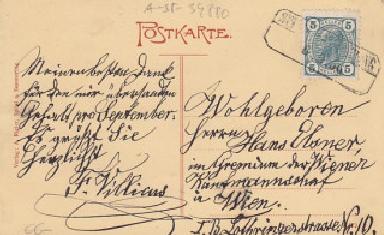 A-38-34880
POSTKARTE.
5 HELLER 5
Meinen besten Dank
für den mir übersandten
Gehalt pro September.
Es grüßt Sie
Herzlichst
Wohlgeboren
Herrn Hans Elsner,
im Gremium der Wiener
Kaufmannschaft
Wien.
Lothringerstrasse Nr. 10.